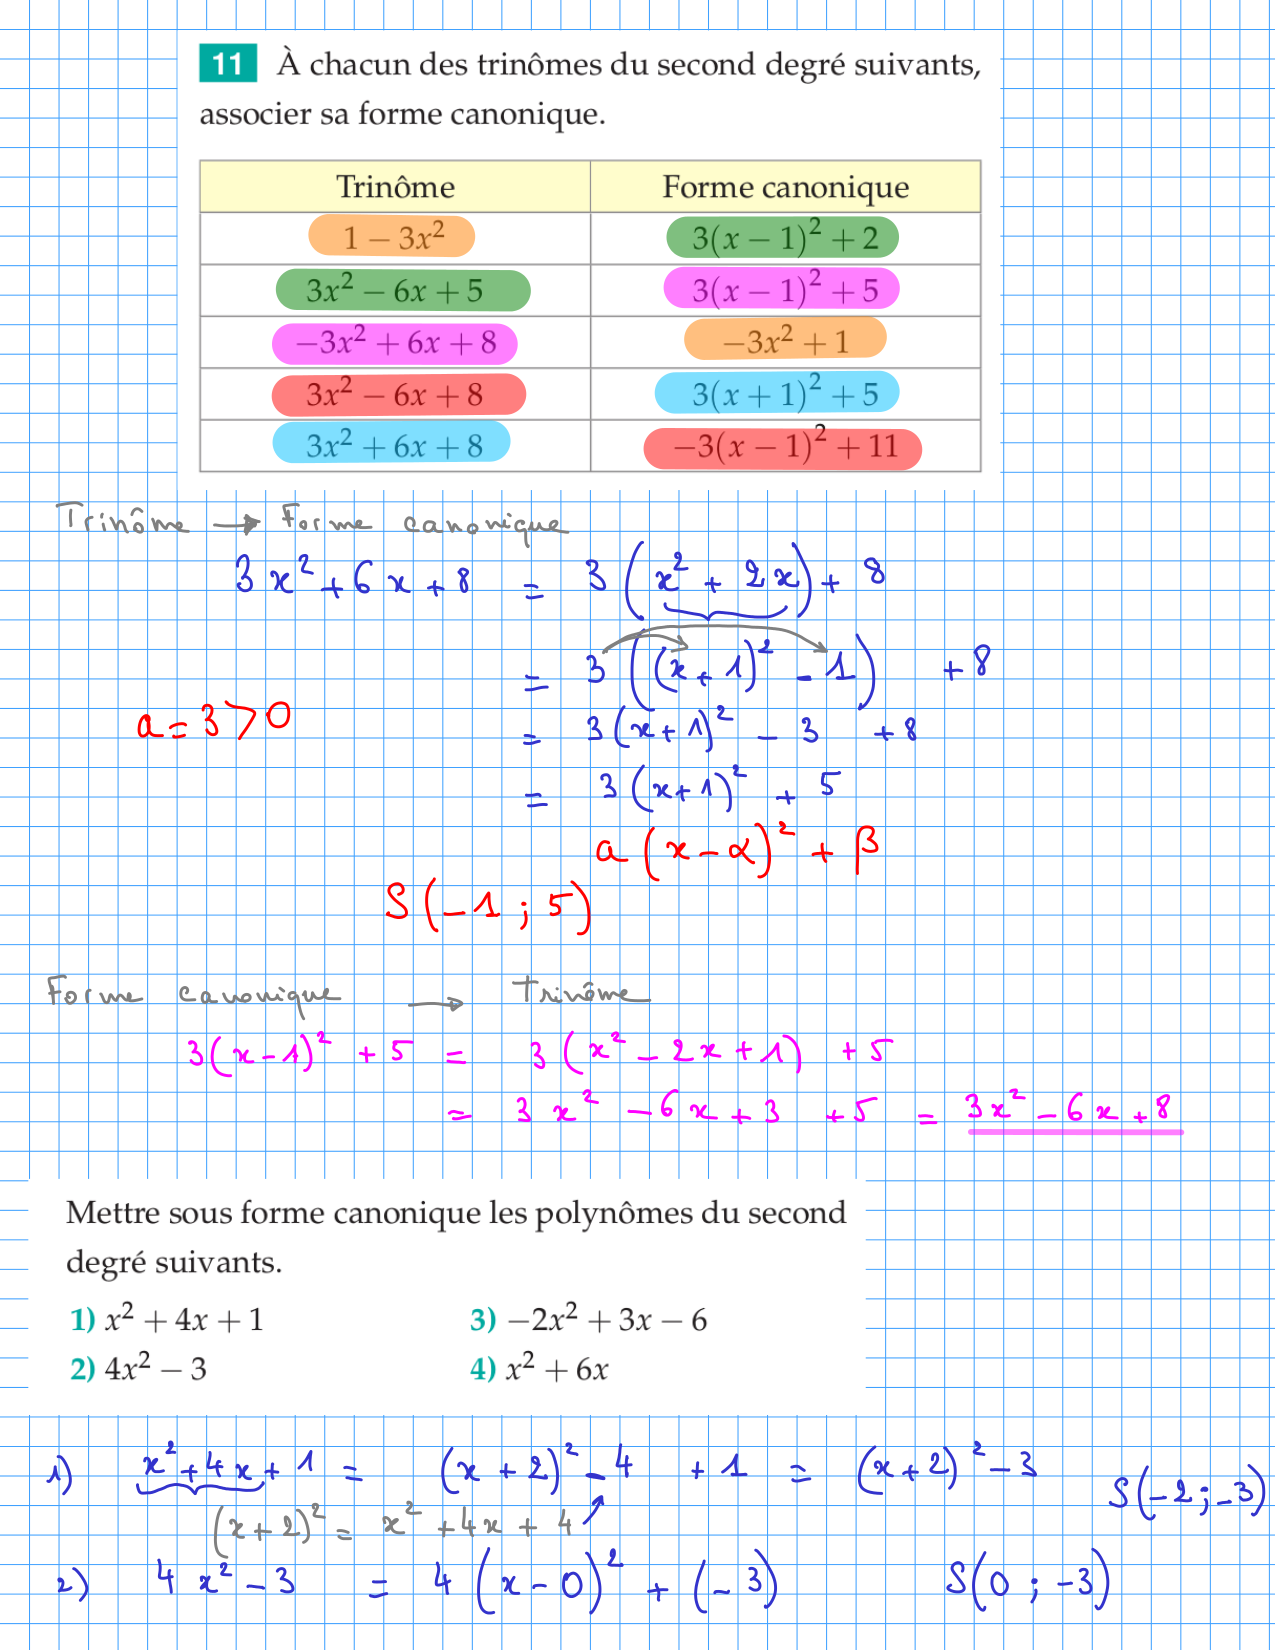 11 À chacun des trinômes du second degré suivants,
associer sa forme canonique.
Trinôme Forme canonique
1 − 3x² 3(x − 1)² + 2
3x² − 6x + 5 3(x − 1)² + 5
−3x² + 6x + 8 −3x² + 1
3x² − 6x + 8 3(x + 1)² + 5
3x² + 6x + 8 −3(x − 1)² + 11
Trinôme → Forme canonique
3x² + 6x + 8 = 3(x² + 2x) + 8
= 3((x + 1)² − 1) + 8
a = 3 > 0
= 3(x + 1)² − 3 + 8
= 3(x + 1)² + 5
a(x − α)² + β
S(−1 ; 5)
Forme canonique → Trinôme
3(x − 1)² + 5 = 3(x² − 2x + 1) + 5
= 3x² − 6x + 3 + 5 = 3x² − 6x + 8
Mettre sous forme canonique les polynômes du second
degré suivants.
1) x² + 4x + 1 3) −2x² + 3x − 6
2) 4x² − 3 4) x² + 6x
1) x² + 4x + 1 = (x + 2)² − 4 + 1 = (x + 2)² − 3 S(−2 ; −3)
(x + 2)² = x² + 4x + 4
2) 4x² − 3 = 4(x − 0)² + (−3) S(0 ; −3)